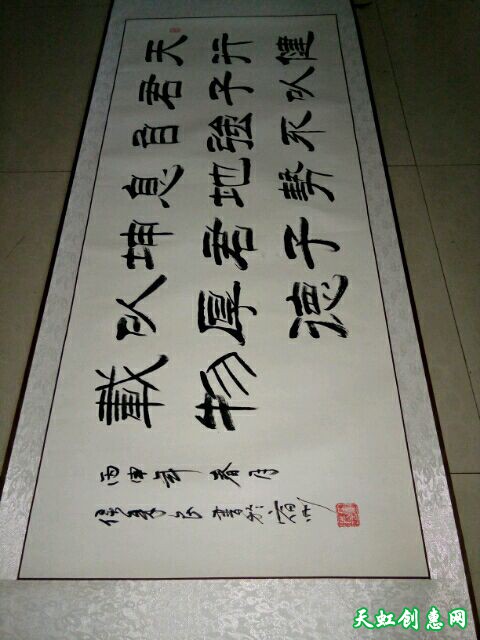 天行健
君子以
自強不
息地勢
坤君子
以厚德
載物
丙申年春月
書於
天虹创惠网